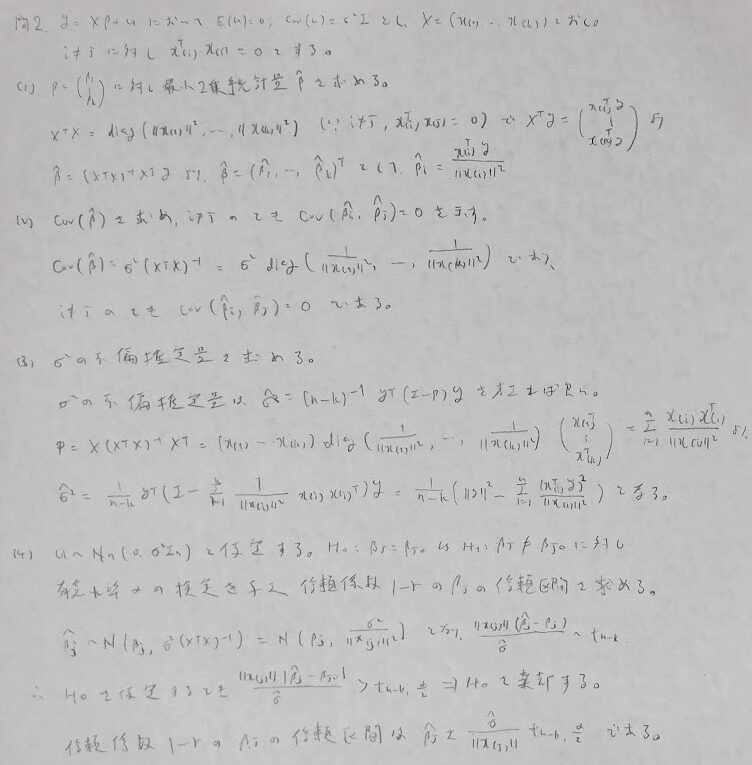 問2. y = Xβ+u において E(u)=0, Cov(u)=σ²I とし、X=(x(1) … x(k)) とおく。
i≠j に対し x(i)ᵀ x(j) = 0 とする。
(1) β = (β1 ⋮ βk) に対し最小2乗推定量 β̂ を求める。
XᵀX = diag(||x(1)||², …, ||x(k)||²) (∵ i≠j, x(i)ᵀ x(j) = 0) で Xᵀy = (x(1)ᵀy ⋮ x(k)ᵀy) より
β̂ = (XᵀX)⁻¹Xᵀy より、β̂ = (β̂1, …, β̂k)ᵀ として、β̂i = x(i)ᵀ y / ||x(i)||²
(2) Cov(β̂) を求め、i≠j のとき Cov(β̂i, β̂j)=0 を示す。
Cov(β̂) = σ²(XᵀX)⁻¹ = σ² diag(1/||x(1)||², …, 1/||x(k)||²) であり、
i≠j のとき Cov(β̂i, β̂j) = 0 である。
(3) σ²の不偏推定量を求める。
σ²の不偏推定量は σ̂² = (n-k)⁻¹ yᵀ(I-P)y を考えれば良い。
P = X(XᵀX)⁻¹Xᵀ = (x(1) … x(k)) diag(1/||x(1)||², …, 1/||x(k)||²) (x(1)ᵀ ⋮ x(k)ᵀ) = Σ x(i) x(i)ᵀ / ||x(i)||² より
σ̂² = 1/(n-k) yᵀ(I - Σ 1/||x(i)||² x(i) x(i)ᵀ)y = 1/(n-k) (||y||² - Σ (x(i)ᵀ y)² / ||x(i)||²) となる。
(4) u ~ Nn(0, σ²In) と仮定する。H0: βj = βj0 vs H1: βj ≠ βj0 に対し
有意水準 α の検定を与え、信頼係数 1-r の βj の信頼区間を求める。
β̂j ~ N(βj, σ²(XᵀX)⁻¹) = N(βj, σ²/||x(j)||²) となり、||x(j)||(β̂j - βj) / σ̂ ~ tn-k
∴ H0 を仮定するとき ||x(j)|| |β̂j - βj0| / σ̂ > tn-k, α/2 ⇒ H0 を棄却する。
信頼係数 1-r の βj の信頼区間は β̂j ± σ̂/||x(j)|| tn-k, α/2 である。